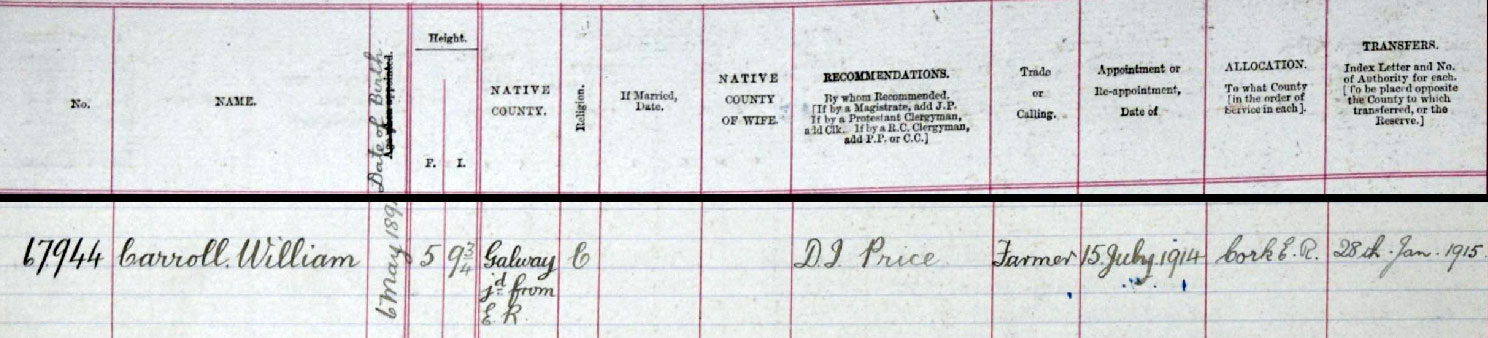 No.
NAME.
Date of Birth
Age when appointed.
Height.
F.
I.
NATIVE
COUNTY.
Religion.
If Married,
Date.
NATIVE
COUNTY
OF WIFE.
RECOMMENDATIONS.
By whom Recommended.
[If by a Magistrate, add J.P.
If by a Protestant Clergyman,
add Clk. If by a R.C. Clergyman,
add P.P. or C.C.]
Trade
or
Calling.
Appointment or
Re-appointment,
Date of
ALLOCATION.
To what County
[in the order of
Service in each].
TRANSFERS.
Index Letter and No.
of Authority for each.
[To be placed opposite
the County to which
transferred, or the
Reserve.]
67944
Carroll. William
6 May 189
5
9 3/4
Galway
jd from
E R
C
D.I. Price
Farmer
15 July. 1914
Cork E. R.
28th Jan. 1915.